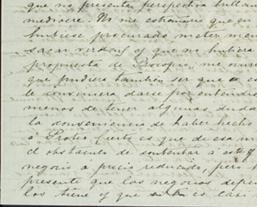 que no presenta perspectiva brillan
mediocre. No me estrañaria que
hubiese procurado meter
sacar y que no hubiera
propuesta de Europa me
que pudiera tambien ser que a
le conviniera darse por entendido
menos de tener algunas dudas
la conveniencia de haber hecho
á Pedro. Cierto es que de esa
el obstáculo de contentar á este y
negocio a precio reducido, pero
presente que los negocios depen
los tiene y que